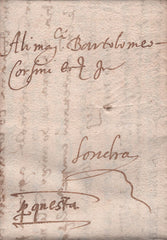 Ali mag.ci Bartolomeo
Corsini e
Londra
p questa